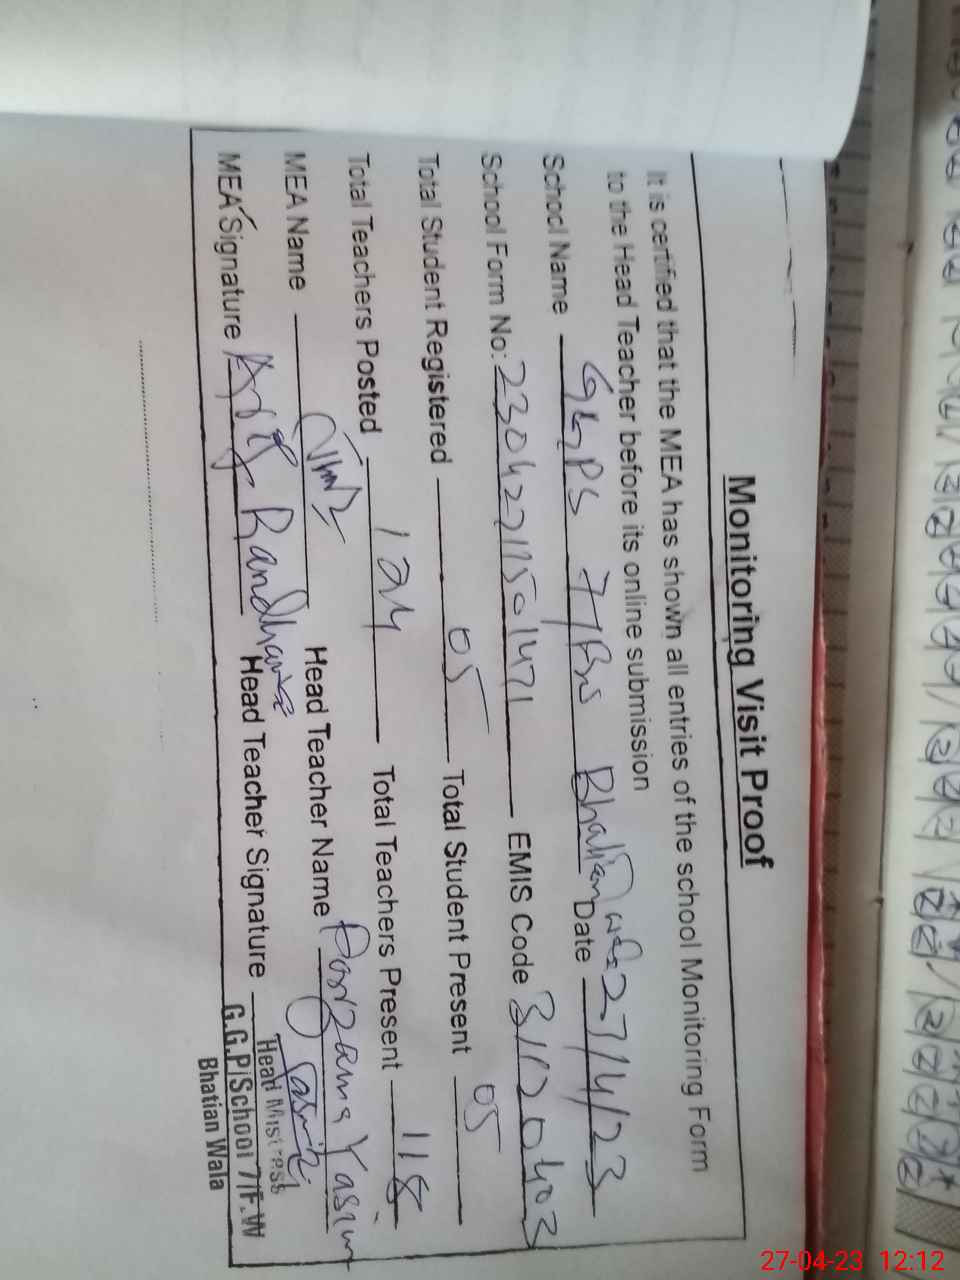 Monitoring Visit Proof
It is certified that the MEA has shown all entries of the school Monitoring Form
to the Head Teacher before its online submission
School Name GGPS 7/ Bhatian Wala Date 27/4/23
School Form No: EMIS Code 31120402
Total Student Registered 05 Total Student Present 05
Total Teachers Posted 124 Total Teachers Present 118
MEA Name Head Teacher Name Yasim
MEA Signature Randhawa Head Teacher Signature
Head Mistress
G.G.P/School 7/F.W
Bhatian Wala
27-04-23 12:12